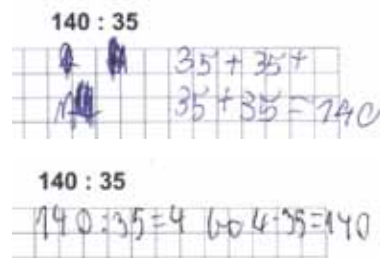 140 : 35
35 + 35 +
35 + 35 = 140
140 : 35
140 : 35 = 4 bo 4 · 35 = 140